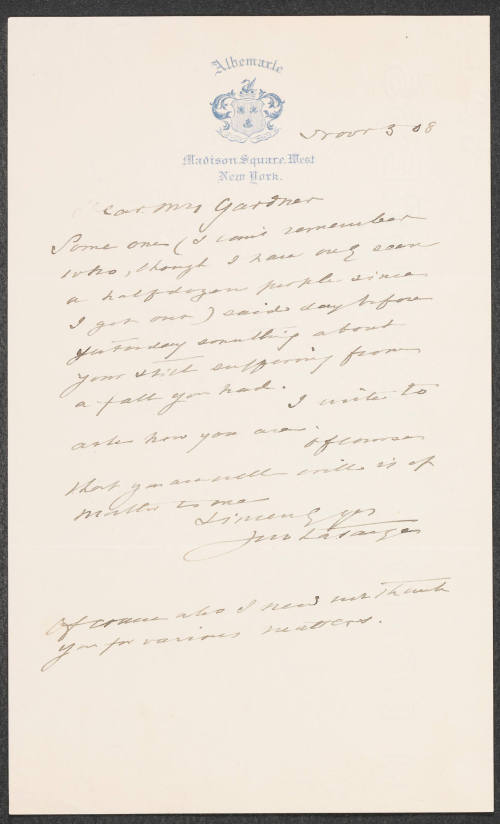 Albemarle
Madison Square West
New York.
Novr 3 08
Dear Mrs Gardner
Some one (I can't remember
who, though I have only seen
a half dozen people since
I got out) said day before
yesterday something about
your still suffering from
a fall you had.
I write to
ask how you are.
Of course
that you are well or ill is of
matter to me
Sincerely yrs
Jno LaFarge
Of course also I need not thank
you for various matters.